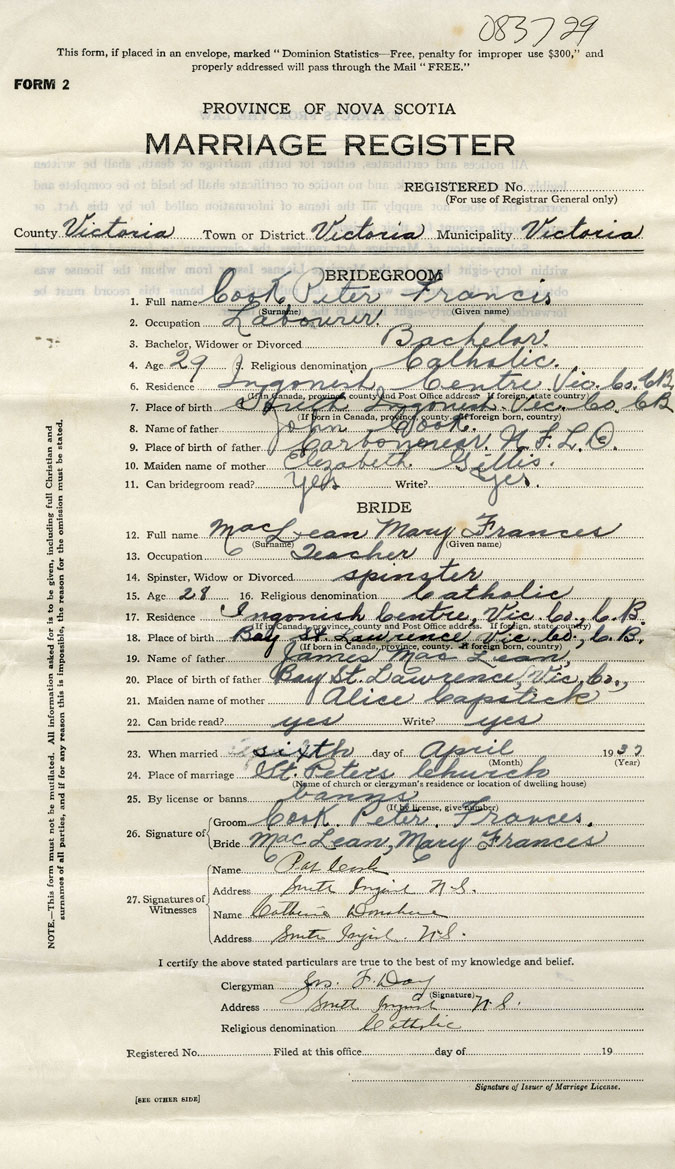 083729
This form, if placed in an envelope, marked "Dominion Statistics—Free, penalty for improper use $300," and
properly addressed will pass through the Mail "FREE."
FORM 2
PROVINCE OF NOVA SCOTIA
MARRIAGE REGISTER
REGISTERED No.
(For use of Registrar General only)
County Victoria Town or District Victoria Municipality Victoria
BRIDEGROOM
1. Full name Cook Peter Francis
(Surname) (Given name)
2. Occupation Labourer
3. Bachelor, Widower or Divorced Bachelor
4. Age 29 5. Religious denomination Catholic.
6. Residence Ingonish Centre Vic. Co. C.B.
(If in Canada, province, county and Post Office address. If foreign, state country)
7. Place of birth South Ingonish Vic. Co. C.B.
(If born in Canada, province, county. If foreign born, country)
8. Name of father John Cook.
9. Place of birth of father Carbonear. N.F.L.D.
10. Maiden name of mother Elizabeth Gillis.
11. Can bridegroom read? Yes Write? Yes.
BRIDE
12. Full name MacLean Mary Frances
(Surname) (Given name)
13. Occupation Teacher
14. Spinster, Widow or Divorced spinster
15. Age 28 16. Religious denomination Catholic
17. Residence Ingonish Centre, Vic. Co., C.B.
(If in Canada, province, county and Post Office address. If foreign, state country)
18. Place of birth Bay St. Lawrence Vic. Co., C.B.
(If born in Canada, province, county. If foreign born, country)
19. Name of father James MacLean,
20. Place of birth of father Bay St. Lawrence, Vic. Co.,
21. Maiden name of mother Alice Capstick
22. Can bride read? yes Write? yes
23. When married sixth day of April 1937
(Month) (Year)
24. Place of marriage St. Peters Church
(Name of church or clergyman's residence or location of dwelling house)
25. By license or banns banns
(If by license, give number)
26. Signature of Groom Cook Peter, Frances,
Bride MacLean, Mary Frances
27. Signatures of Witnesses
Name Pat Cook
Address South Ingonish N.S.
Name Catherine Donahue
Address South Ingonish N.S.
I certify the above stated particulars are true to the best of my knowledge and belief.
Clergyman Jas. F. Day
(Signature)
Address South Ingonish N.S.
Religious denomination Catholic
Registered No. Filed at this office day of 19
Signature of Issuer of Marriage License.
[SEE OTHER SIDE]
NOTE.—This form must not be mutilated. All information asked for is to be given, including full Christian and
surnames of all parties, and if for any reason this is impossible, the reason for the omission must be stated.